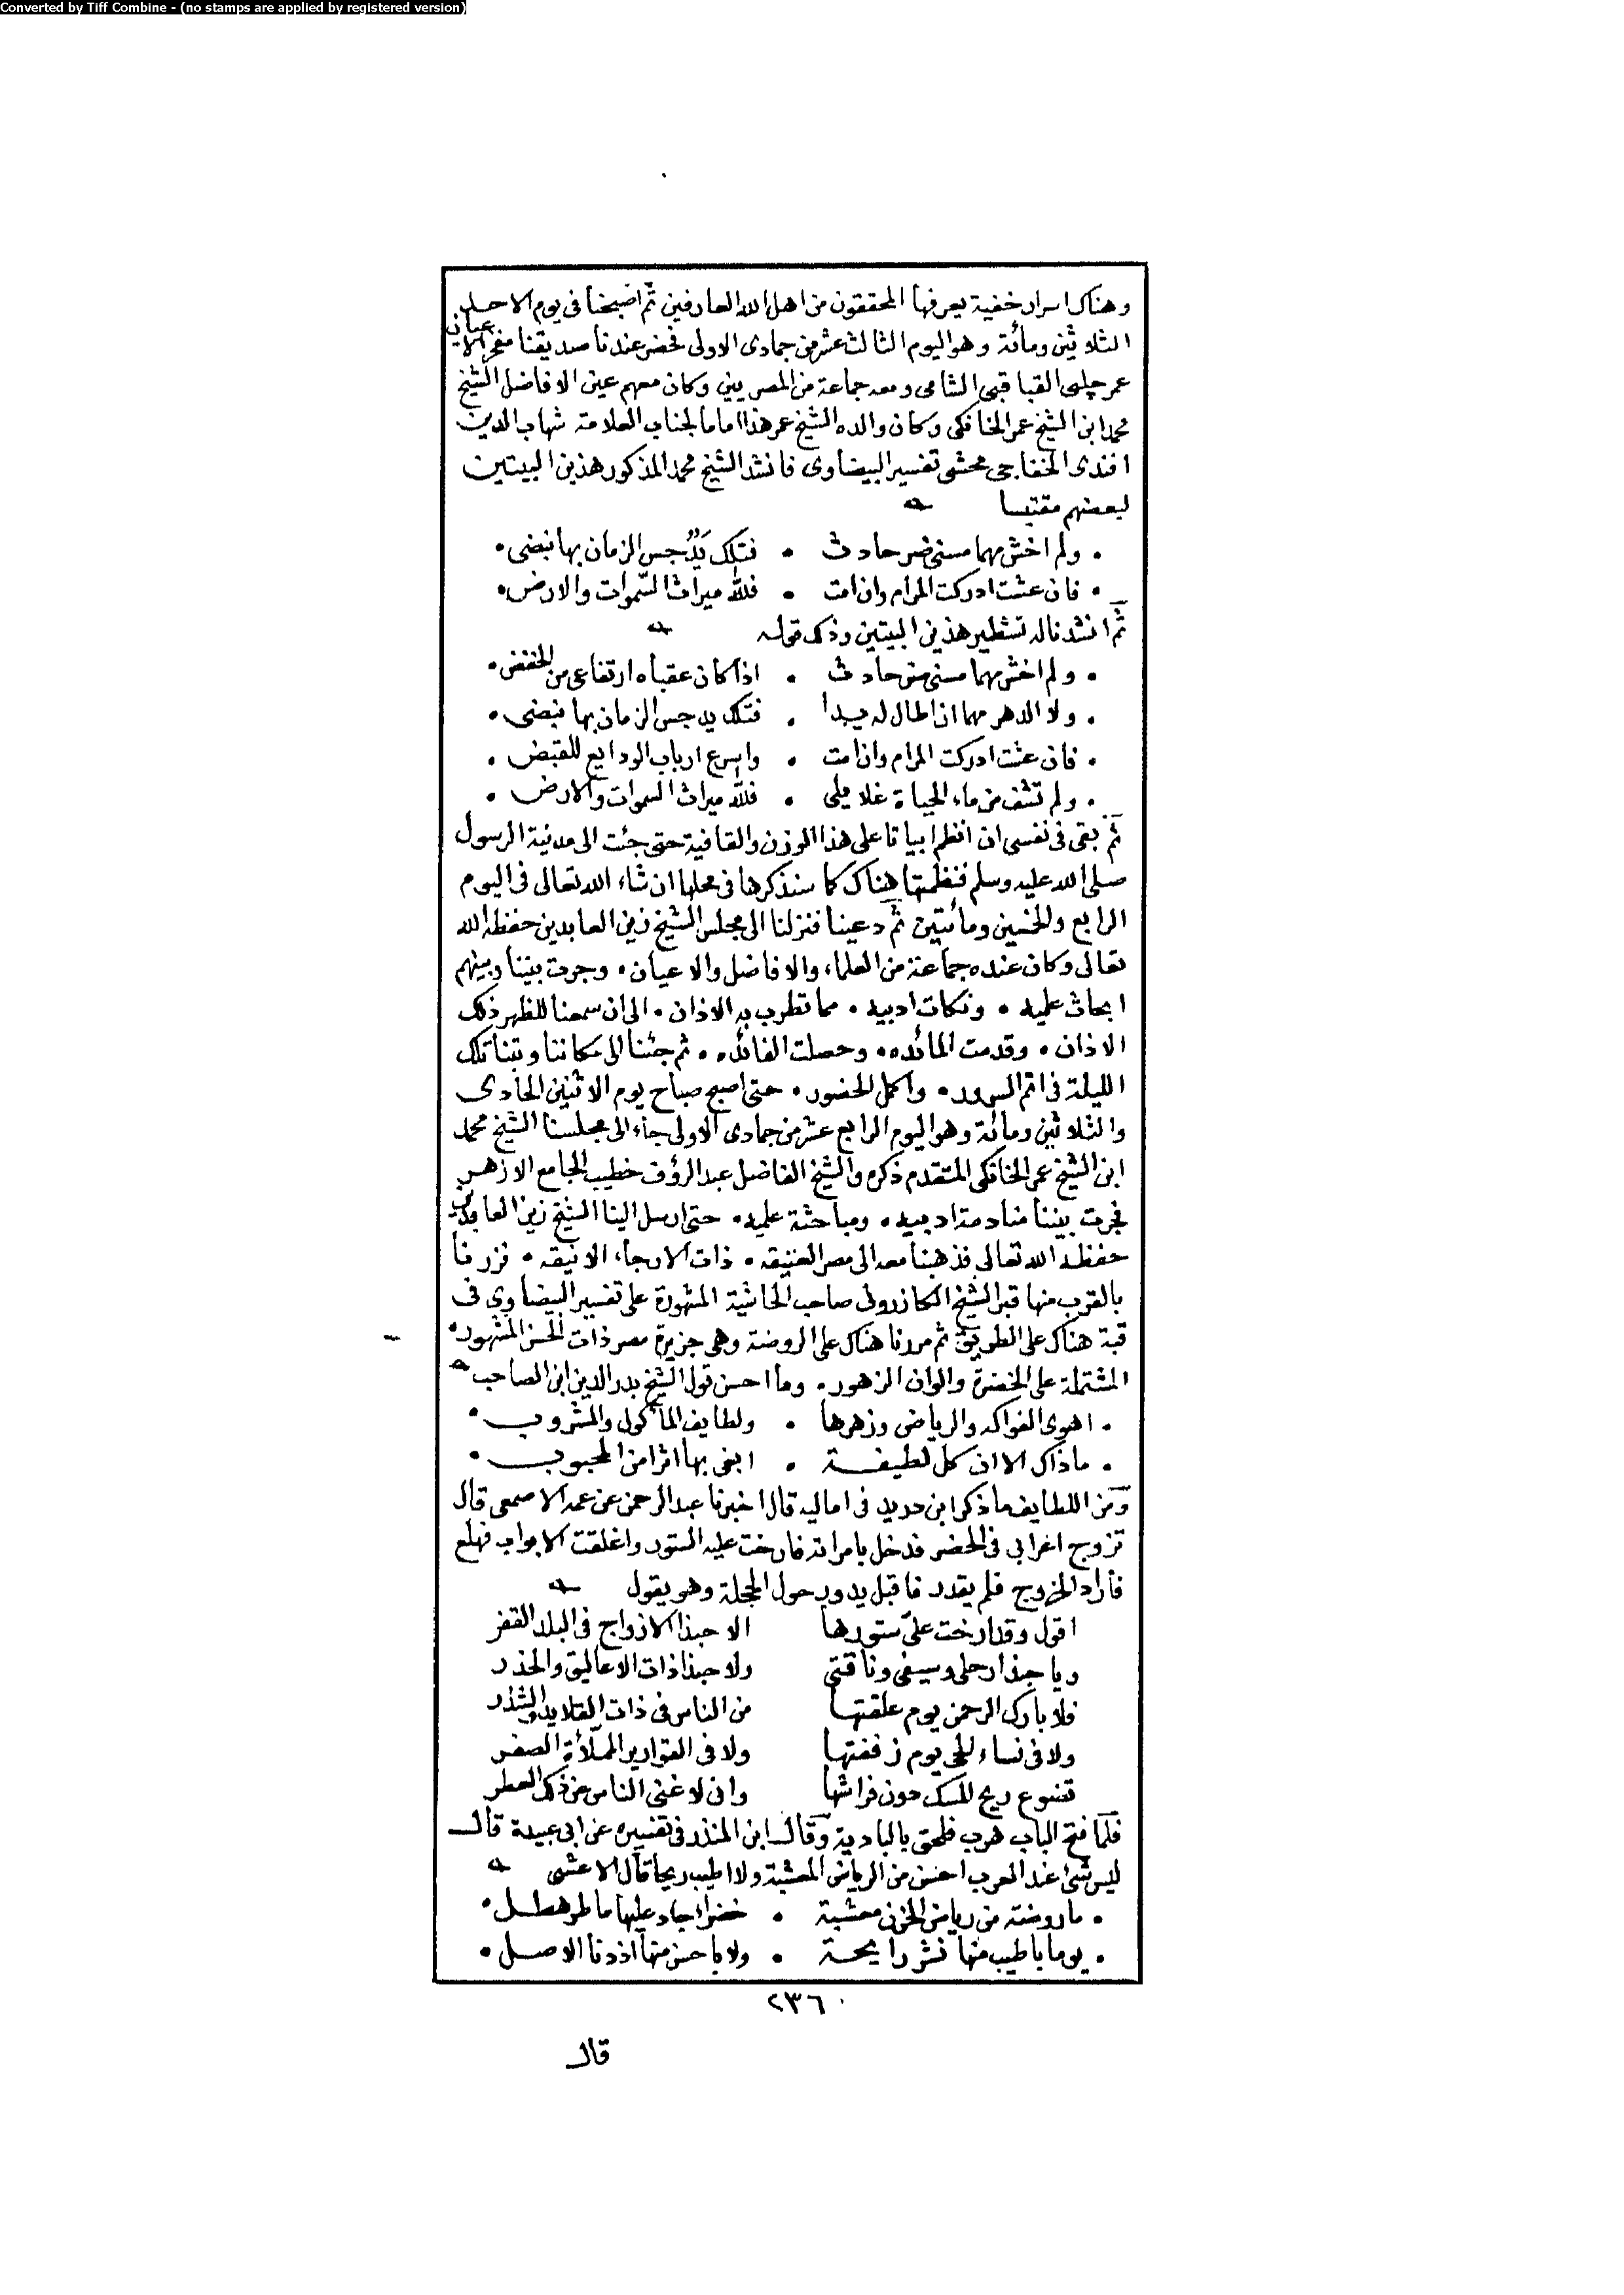 Converted by Tiff Combine - (no stamps are applied by registered version)
وهناك اسرار خفية يعرفها المحققون من اهل الله العارفين ثم اصبحنا في يوم الاحد
الثلاثين ومائة وهو اليوم الثالث عشر من جمادى الاولى فحضر عندنا صديقنا مفخر الاعيان
عمر چلبى القباقبى الشامى ومعه جماعة من المصريين وكان معهم عين الافاضل الشيخ
محمد ابن الشيخ عمر الخانكى وكان والده الشيخ عمر هذا اماما لجناب العلامة شهاب الدين
افندى الخفاجى محشى تفسير البيضاوى فانشد الشيخ محمد المذكور هذين البيتين
لبعضهم مقتبسا
• ولم اخش مهما مسنى ضر حادث • فتلك يد جس الزمان بها نبضى •
• فان عشت ادركت المرام وان امت • فلله ميراث السموات والارض •
ثم انشدنا له تشطير هذين البيتين وذلك قوله
• ولم اخش مهما مسنى ضر حادث • اذا كان عقباه ارتفاعى من الخفض •
• ولا الدهر مهما ان اطال له يدا • فتلك يد جس الزمان بها نبضى •
• فان عشت ادركت المرام وان امت • واسرع ارباب الودايع للقبض •
• ولم تشف من ماء الحياة غلائلى • فلله ميراث السموات والارض •
ثم بقى فى نفسى ان انظم ابياتا على هذا الوزن والقافية حتى جئت الى مدينة الرسول
صلى الله عليه وسلم فنظمتها هناك كما سنذكرها فى محلها ان شاء الله تعالى فى اليوم
الرابع والخمسين ومائتين ثم دعينا فنزلنا الى مجلس الشيخ زين العابدين حفظه الله
تعالى وكان عنده جماعة من العلماء والافاضل والاعيان • وجرت بيننا وبينهم
ابحاث علميه • ونكات ادبيه • مما تطرب به الاذان • الى ان سمعنا للظهر ذلك
الاذان • وقدمت المائده • وحصلت الفائده • ثم جئنا الى مكاننا وبتنا تلك
الليلة فى اتم السرور • واكمل الحضور • حتى اصبح صباح يوم الاثنين الحادى
والثلاثين ومائة وهو اليوم الرابع عشر من جمادى الاولى جاء الى مجلسنا الشيخ محمد
ابن الشيخ عمر الخانكى المتقدم ذكره والشيخ الفاضل عبد الرؤف خطيب الجامع الازهر
فجرت بيننا منادمة ادبيه • ومباحثة علميه • حتى ارسل الينا الشيخ زين العابدين
حفظه الله تعالى فذهبنا معه الى مصر العتيقه • ذات الارجاء الانيقه • فزرنا
بالقرب منها قبر الشيخ الكازرونى صاحب الحاشية المشهورة على تفسير البيضاوى فى
قبة هناك على الطريق ثم مررنا هناك على الروضة وهى جزيرة مصر ذات الحسن المشهور •
المشتملة على الخضرة والوان الزهور • وما احسن قول الشيخ بدر الدين ابن الصاحب
• اهوى الفواكه والرياض وزهرها • ولطايف المأكول والمشروب •
• ما ذاك الا ان كل لطيفة • ابغى بها اثرا من المحبوب •
ومن اللطايف ما ذكر ابن دريد فى اماليه قال اخبرنا عبد الرحمن عن عمه الاصمعى قال
تزوج اعرابى فى الحضر فدخل بامراته فارخت عليه الستور واغلقت الابواب فهلع
فأراد الخروج فلم يقدر فاقبل يدور حول الحجلة وهو يقول
اقول وقد ارخت علىّ ستورها الا حبذا الازواج فى البلد القفر
ويا حبذا رحلى وسيفى وناقتى ولا حبذا ذات الاعاليق والخدر
فلا بارك الرحمن يوم علقتها من الناس فى ذات القلايد والشذر
ولا فى نساء الحى يوم زففتها ولا فى القوارير الملأة الصفر
تضوع ريح المسك دون فراشها وانى لاغنى الناس عن ذلك العطر
فلما فتح الباب هرب فلحق بالبادية وقال ابن المنذر فى تفسيره عن ابى عبيدة قال
ليس شئ عند العرب احسن من الرياض المعشبة ولا اطيب ريحا قال الاعشى
• ما روضة من رياض الحزن معشبة • خضراء جاد عليها ماطر هطل •
• يوما باطيب منها نشر رايحة • ولا باحسن منها اذ دنا الاصل •
٢٣٦
قال